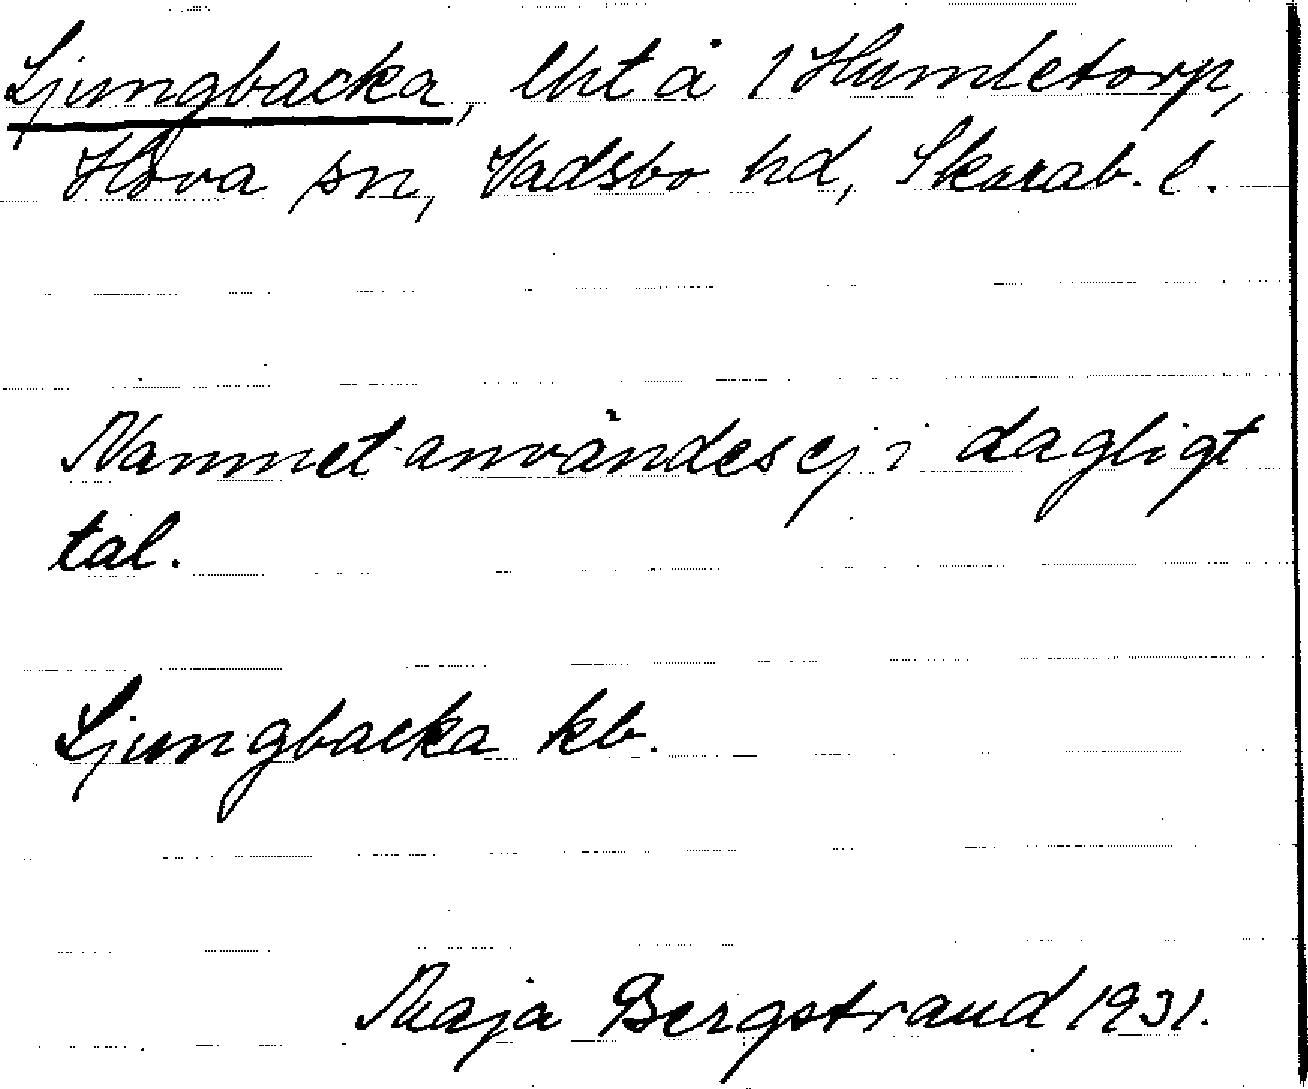 Ljungbacka, lht å 1 Humletorp,
Hova sn, Vadsbo hd, Skarab. l.
Namnet användes ej i dagligt
tal.
Ljungbacka kb.
Maja Bergstrand 1931.